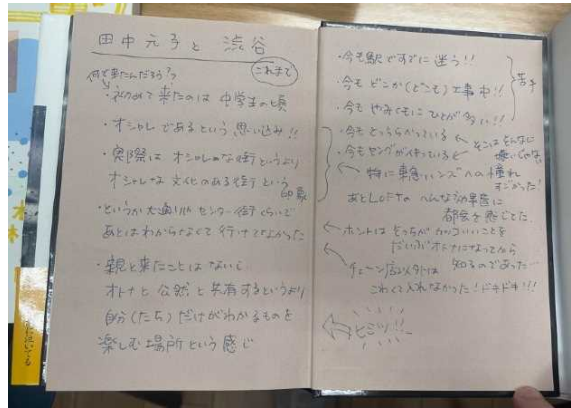 田中元子と 渋谷
これまで
何で来たんだろう??
・初めて来たのは 中学生の頃
・オシャレであるという思い込み!!
・実際は オシャレな街というより
オシャレな文化のある街という
印象
・というか大通りや センター街くらいで
あとはわからなくて行けてなかった
・親と来たことはないし
オトナと公然と共有するというより
自分(たち)だけがわかるものを
楽しむ場所という感じ
・今も駅ですでに迷う!!
・今もどこか(どこも)工事中!!
・今も やみくもに ひとが多い!!
苦手
・今もとっちらかっている
そこはそんなに
嫌いじゃない
・今もヤングが
特に
への憧れ
スゴかった!
あとLOFTの へんな
に
都会を感じてた
ホントは そっちが カッコいいことを
だいぶオトナになってから
知るのであった
チェーン店以外は
こわくて入れなかった!ドキドキ!!!
ヒミツ!!